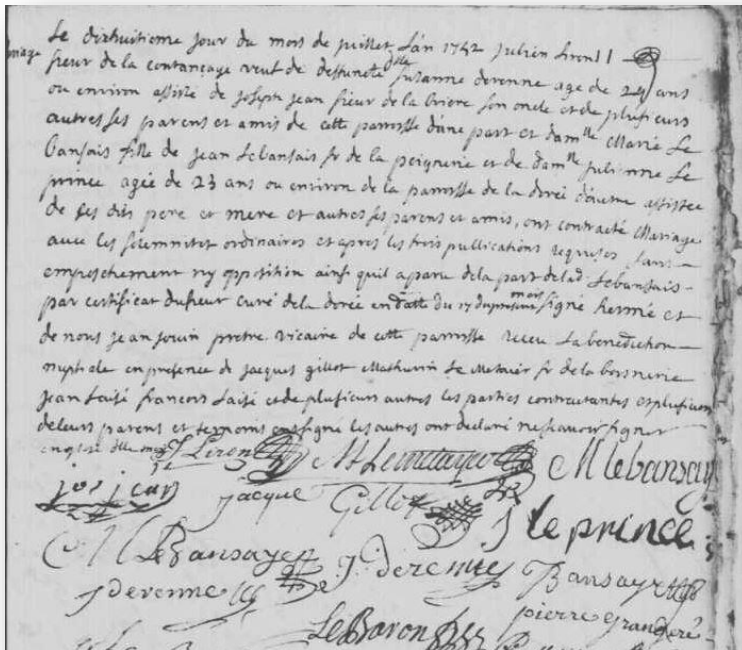 mariage
Le dixhuitieme jour du mois de juillet Lán 1742 julien Liron
sieur de la contançaye veuf de deffuncte dlle susanne derenne agé de 24 ans
ou environ assisté de joseph jean sieur de la briere son oncle et de plusieurs
autres ses parens et amis de cette paroisse dúne part et damlle Marie Le
bansais fille de jean Lebansais sr de la peignerie et de damlle julienne Le
prince agée de 23 ans ou environ de la paroisse de la doreé dáutre assistee
de ses dits pere et mere et autres ses parens et amis, ont contracté Mariage
avec les solemnitez ordinaires et apres les trois publications requises sans
empeschement ny opposition ainsi quil a paru de la part de lad. Lebansais
par certificat du sieur curé de la doreé en datte du 17 du present mois signé hermé et
de nous jean jouin pretre vicaire de cette paroisse receu La benediction
nuptiale en presence de jacques gillot Mathurin Le Metaier sr de la
jean Laisé francois Laisé et de plusieurs autres les parties contractantes et plusieurs
de leurs parens et temoins ont signé les autres ont declaré ne sçavoir signer
J Liron M lebansay
jos jean jacque Gillot
J le prince
M LeBansayes
J derenne J. deremie Bansayes
LeBaron pierre grandere